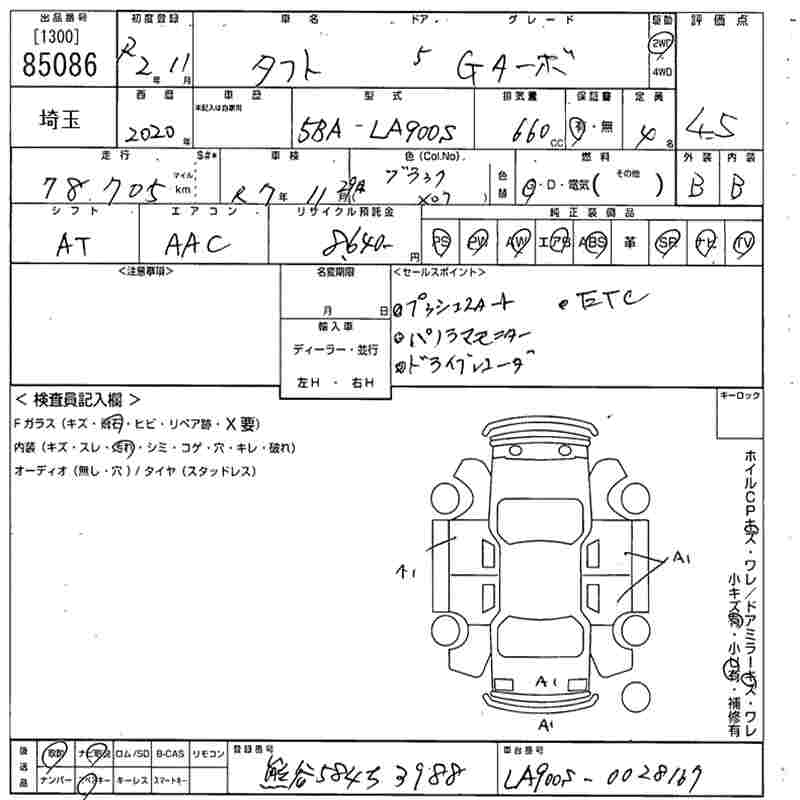 出品番号 初度登録 車名 ドア グレード 駆動 評価点
[1300]
85086 R2年 11月 タフト 5 Gターボ 2WD
4WD
4.5
西暦 車歴 型式 排気量 保証書 定員
本記入は自家用
埼玉 2020年 5BA-LA900S 660cc 有・無 4名
走行 S#* 車検 色(Col.No) 燃料 外装 内装
78,705 マイル km R7年 11月 29日 ブラック X07 色替 G・D・電気( その他 ) B B
シフト エアコン リサイクル預託金 純正装備品
AT AAC 8,640-円 PS PW AW エアB ABS 革 SR ナビ TV
<注意事項> 名変期限 <セールスポイント>
月 日
プッシュスタート ETC
パノラマモニター
ドライブレコーダ
輸入車
ディーラー・並行
左H・右H
<検査員記入欄> キーロック
Fガラス(キズ・飛石・ヒビ・リペア跡・X要)
内装(キズ・スレ・汚れ・シミ・コゲ・穴・キレ・破れ)
オーディオ(無し・穴)/タイヤ(スタッドレス)
A1
A1
A1
ホイルCPキズ・ワレ/ドアミラーキズ・ワレ
小キズ有・小凹有・補修有
後送品 取説 ナビ取説 ロム/SD B-CAS リモコン 登録番号 車台番号
ナンバー スペアキー キーレス スマートキー
熊谷584ち3988 LA900S-0028167